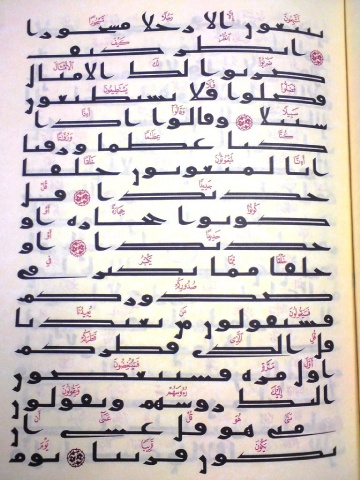 تتبعون الا رجلا مسحورا
۝ انظر كيف
ضربوا لك الامثال
فضلوا فلا يستطيعون
سبيلا ۝ وقالوا اذا
كنا عظما ورفتا
انا لمبعوثون خلقا
جديدا ۝ قل
كونوا حجاره او
حديدا ۝ او
خلقا مما يكبر في
صدوركم
فسيقولون من يعيدنا
قل الذي فطركم
اول مره فسينغضون
اليك روسهم ويقولون
متى هو قل عسى ان
يكون قريبا ۝ يوم